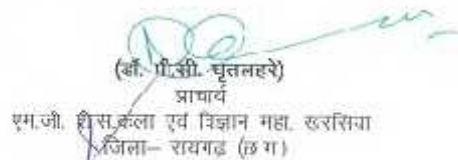 (डॉ. पी.सी. घृतलहरे)
प्राचार्य
एम.जी. शास.कला एवं विज्ञान महा. खरसिया
जिला– रायगढ़ (छ ग)